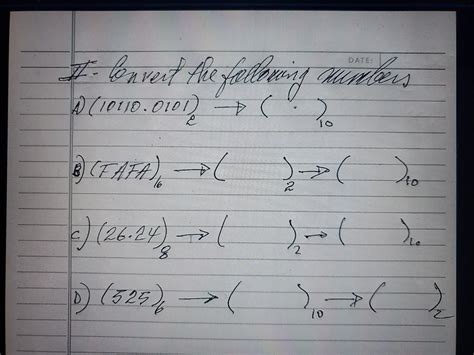 DATE:
II- Convert the following numbers
A) (10110.0101)₂ → ( . )₁₀
B) (FAFA)₁₆ → ( )₂ → ( )₁₀
C) (26.24)₈ → ( )₂ → ( )₁₀
D) (525)₆ → ( )₁₀ → ( )₂